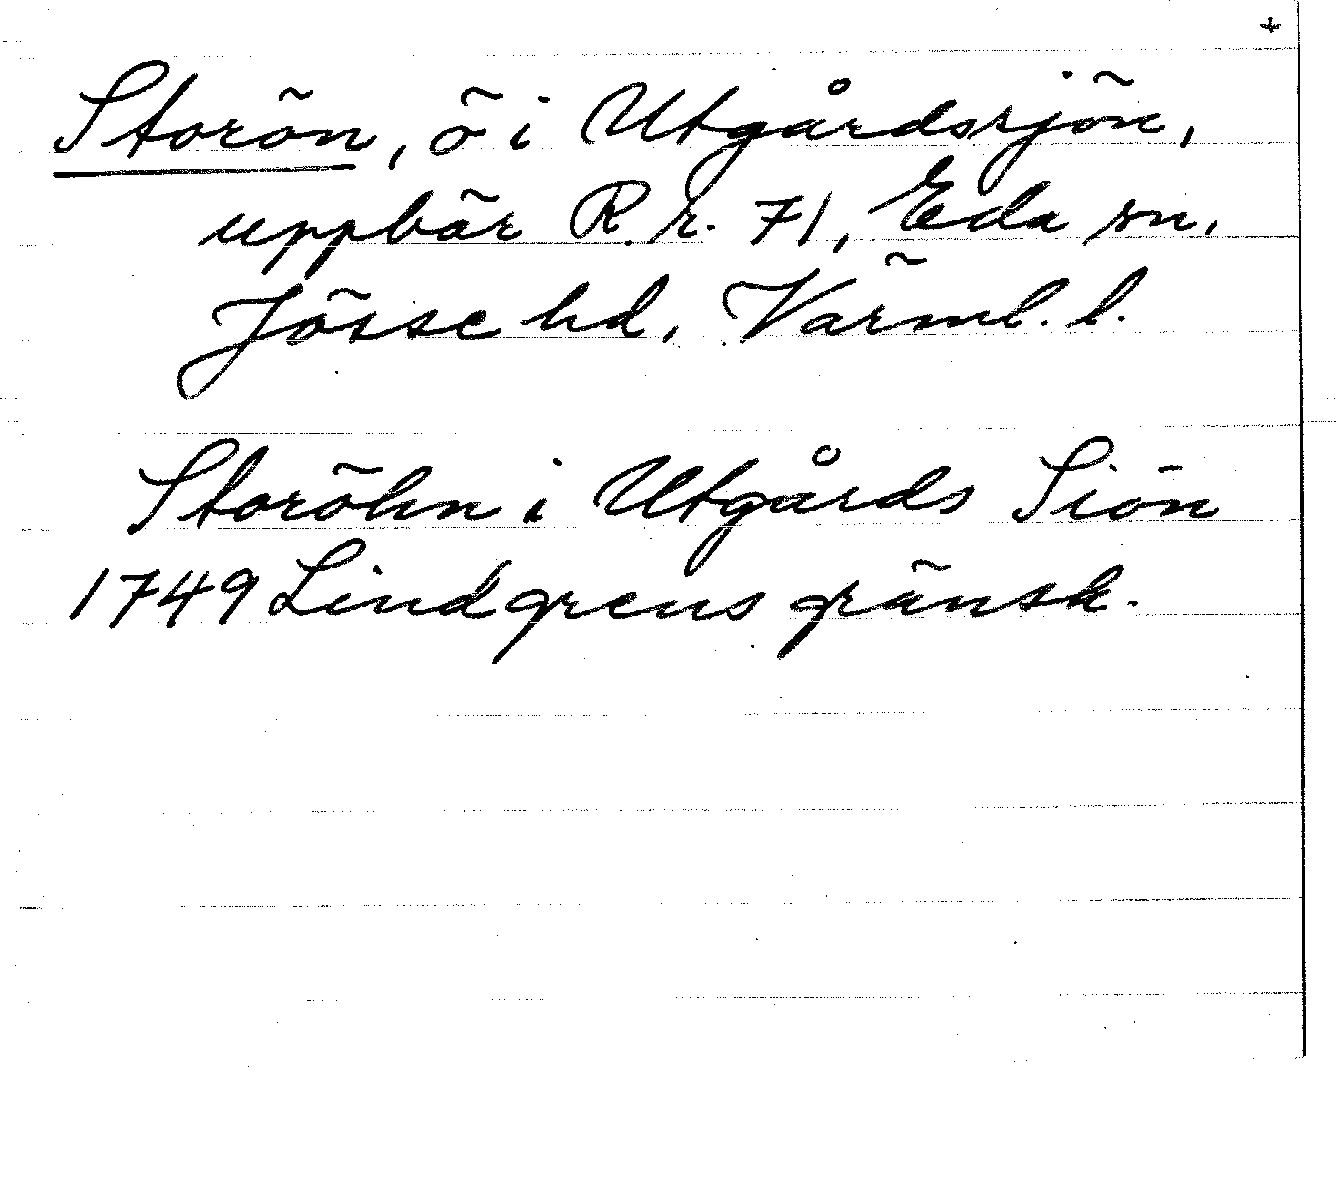 Storön, ö i Utgårdssjön,
uppbär R.r. 71, Eda sn,
Jösse hd, Värml. l.
Storöhn i Utgårds Siön
1749 Lindgrens gränsk.